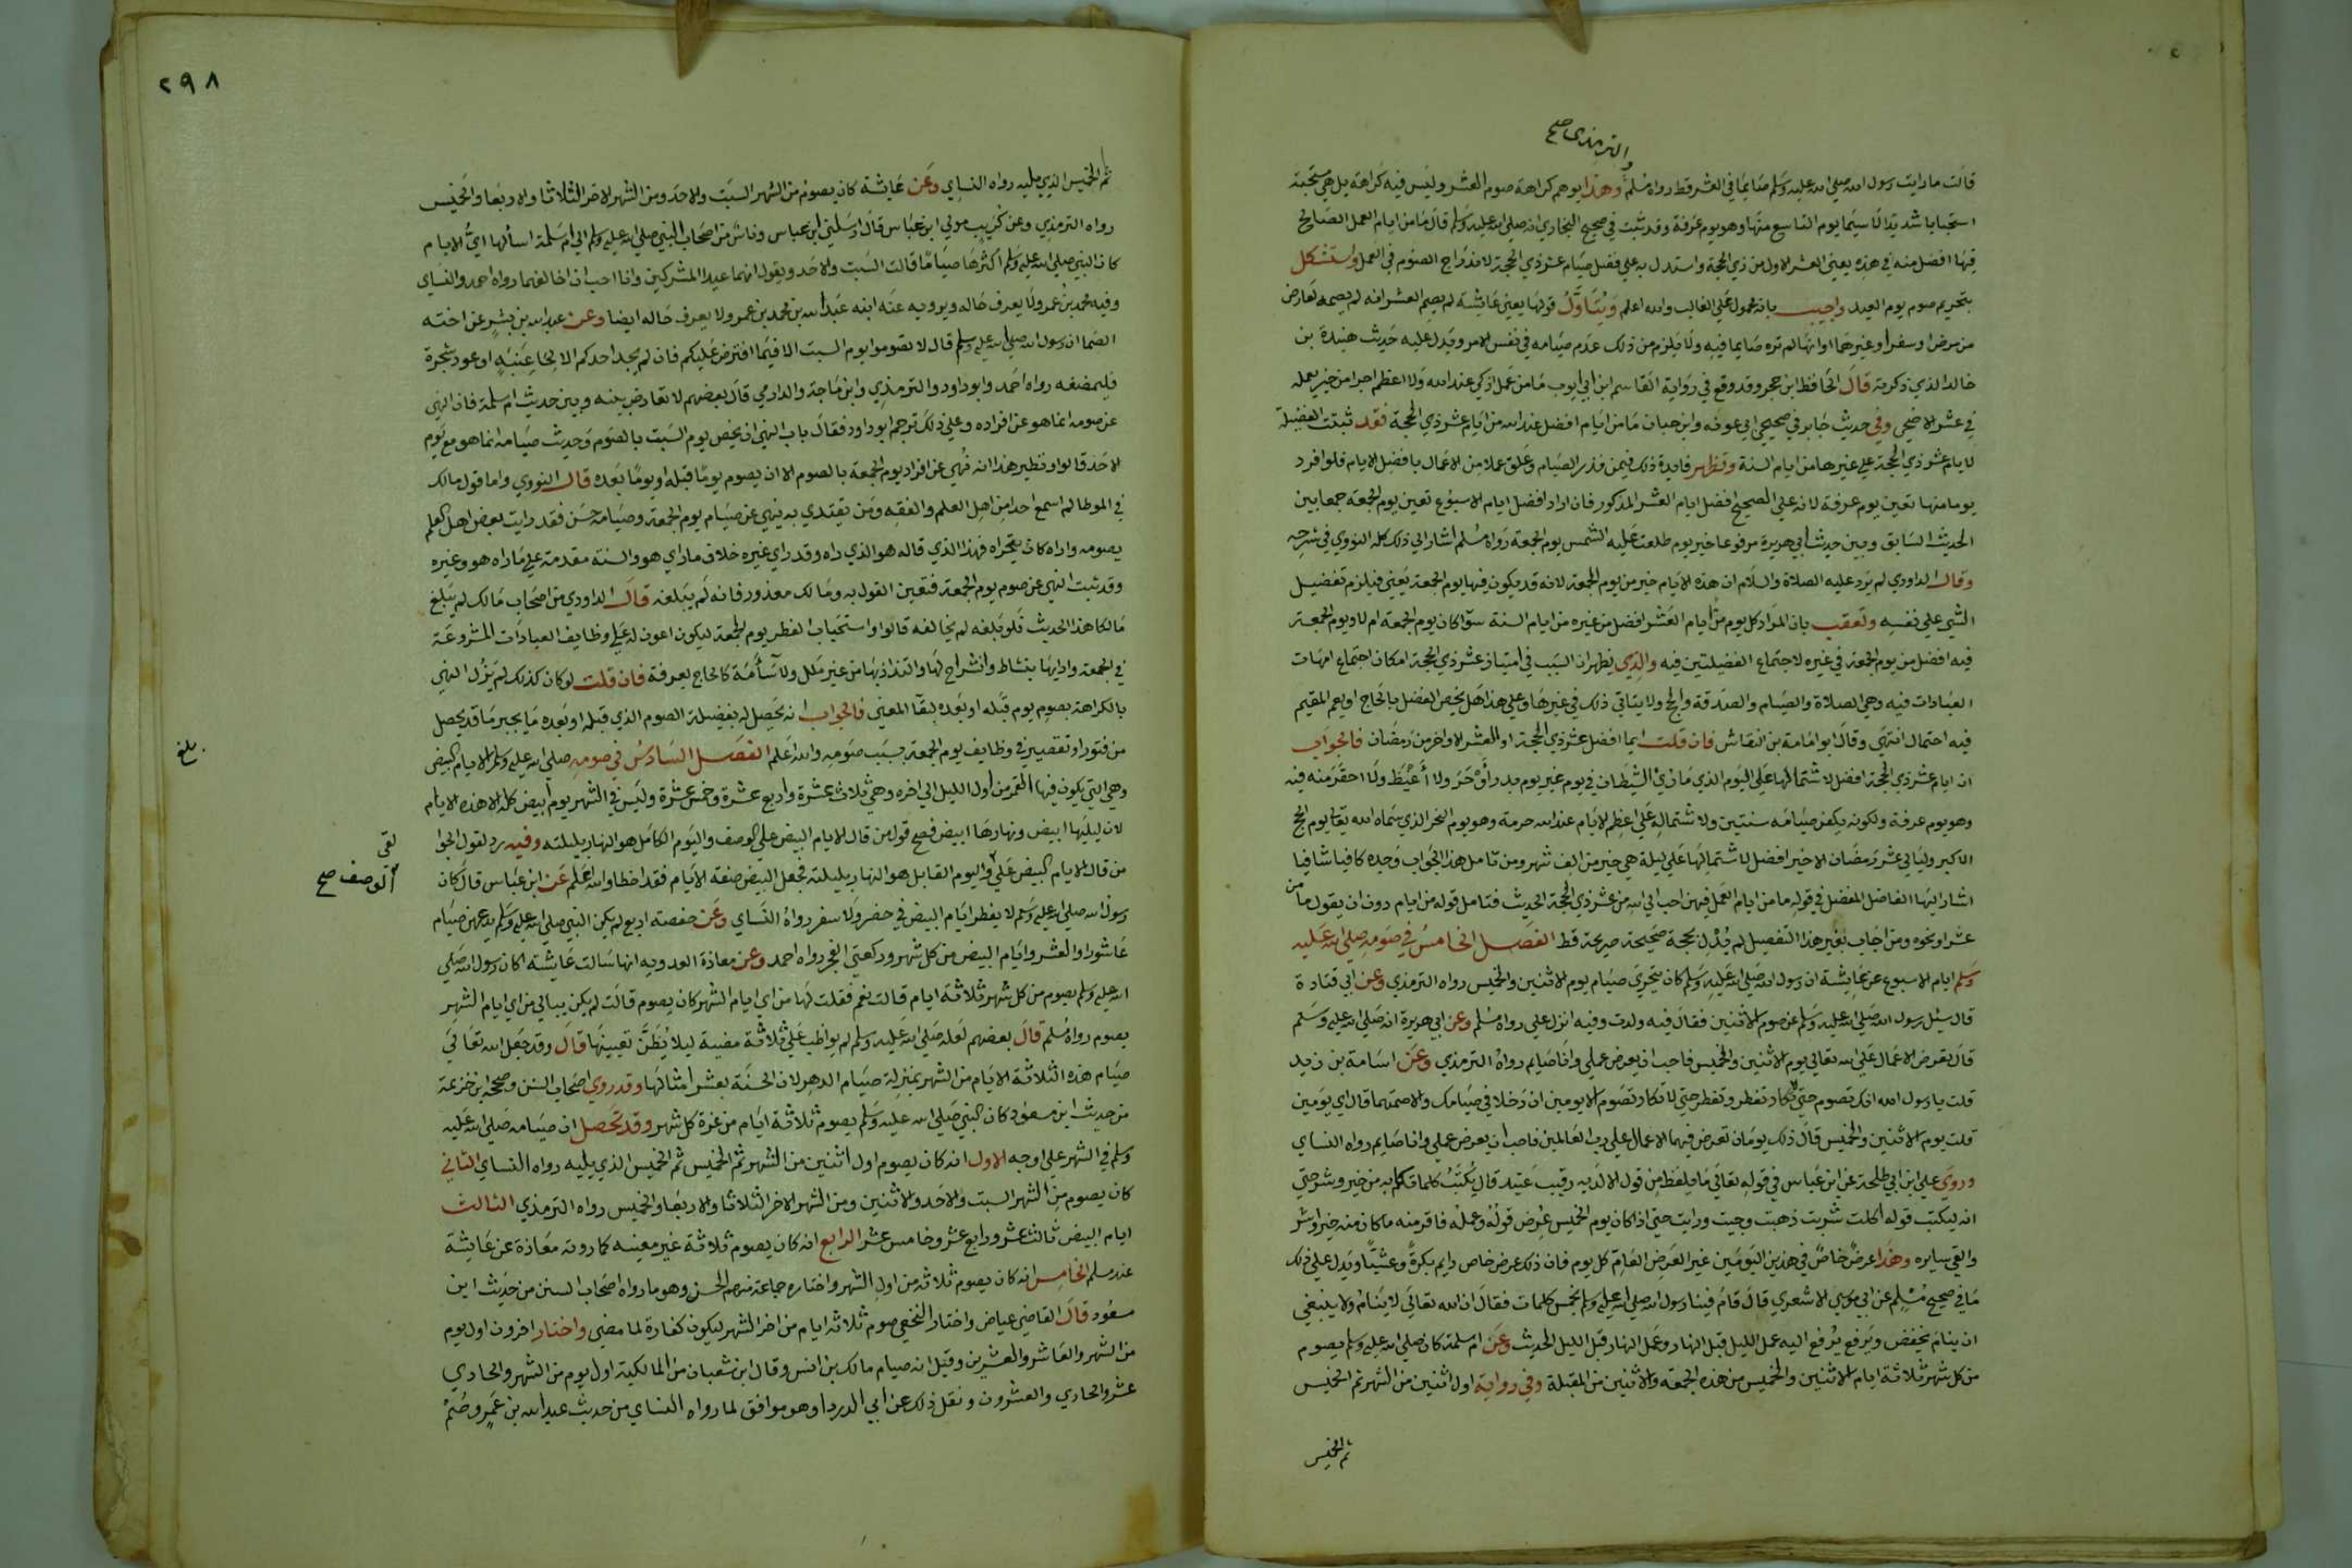 والترمذي صح
قالت ما رايت رسول الله صلي الله عليه وسلم صايما في العشر قط رواه مسلم وهذا يوهم كراهة صوم العشر وليس فيه كراهة بل هي مستحبة
استحبابا شديدا لا سيما يوم التاسع منها وهو يوم عرفة وقد ثبت في صحيح البخاري انه صلي الله عليه وسلم قال ما من ايام العمل الصالح
فيها افضل منه في هذه يعني العشر الاول من ذي الحجة واستدل به علي فضل صيام عشر ذي الحجة لاندراج الصوم في العمل واستشكل
بتحريم صوم يوم العيد واجيب بانه محمول علي الغالب والله اعلم ويتاول قولها يعني عايشة لم يصم العشر انه لم يصمه لعارض
من مرض او سفر او غيرهما او انها لم تره صايما فيه ولا يلزم من ذلك عدم صيامه في نفس الامر ويدل عليه حديث هنيدة بن
خالد الذي ذكرته قال الحافظ ابن حجر وقد وقع في رواية القاسم ابن ابي ايوب ما من عمل ازكي عند الله ولا اعظم اجرا من خير يعمله
في عشر الاضحي وفي حديث جابر في صحيحي ابي عوانه وابن حبان ما من ايام افضل عند الله من ايام عشر ذي الحجة فقد ثبتت الفضيلة
لايام عشر ذي الحجة علي غيرها من ايام السنة وتظهر فايدة ذلك فيمن نذر الصيام او علق عملا من الاعمال بافضل الايام فلو افرد
يوما منها تعين يوم عرفة لانه علي الصحيح افضل ايام العشر المذكور فان اراد افضل ايام الاسبوع تعين يوم الجمعة جمعا بين
الحديث السابق وبين حديث ابي هريرة مرفوعا خير يوم طلعت عليه الشمس يوم الجمعة رواه مسلم اشار الي ذلك كله النووي في شرحه
وقال الداودي لم يرد عليه الصلاة والسلام ان هذه الايام خير من يوم الجمعة لانه قد يكون فيها يوم الجمعة يعني فيلزم تفضيل
الشي علي نفسه وتعقب بان المراد كل يوم من ايام العشر افضل من غيره من ايام السنة سوا كان يوم الجمعة ام لا ويوم الجمعة
فيه افضل من يوم الجمعة في غيره لاجتماع الفضيلتين فيه والذي يظهر ان السبب في امتياز عشر ذي الحجة امكان اجتماع امهات
العبادات فيه وهي الصلاة والصيام والصدقة والحج ولا يتاتي ذلك في غيرها وعلي هذا هل يخص الفضل بالحاج او يعم المقيم
فيه احتمال انتهي وقال ابو امامة بن النقاش فان قلت ايما افضل عشر ذي الحجة او العشر الاواخر من رمضان فالجواب
ان ايام عشر ذي الحجة افضل لاشتمالها علي اليوم الذي ما رؤي الشيطان في يوم غير يوم بدر ادحر ولا اغيظ ولا احقر منه فيه
وهو يوم عرفة ولكونه يكفر صيامه سنتين ولاشتماله علي اعظم الايام عند الله حرمة وهو يوم النحر الذي سماه الله تعالي يوم الحج
الاكبر وليالي عشر رمضان الاخير افضل لاشتمالها علي ليلة هي خير من الف شهر ومن تامل هذا الجواب وجده كافيا شافيا
اشار اليها الفاضل المفضل في قوله ما من ايام العمل فيهن احب الي الله من عشر ذي الحجة الحديث فتامل قوله من ايام دون ان يقول ما من
عشر او نحوه ومن اجاب بغير هذا التفصيل لم يدل بحجة صحيحة صريحة قط الفصل الخامس في صومه صلي الله عليه
وسلم ايام الاسبوع عن عايشة ان رسول الله صلي الله عليه وسلم كان يتحري صيام يوم الاثنين والخميس رواه الترمذي وعن ابي قتادة
قال سئل رسول الله صلي الله عليه وسلم عن صوم الاثنين فقال فيه ولدت وفيه انزل علي رواه مسلم وعن ابي هريرة انه صلي الله عليه وسلم
قال تعرض الاعمال علي الله تعالي يوم الاثنين والخميس فاحب ان يعرض عملي وانا صايم رواه الترمذي وعن اسامة بن زيد
قلت يا رسول الله انك تصوم حتي لا تكاد تفطر وتفطر حتي لا تكاد تصوم الا يومين ان دخلا في صيامك والا صمتهما قال اي يومين
قلت يوم الاثنين والخميس قال ذلك يومان تعرض فيهما الاعمال علي رب العالمين فاحب ان يعرض عملي وانا صايم رواه النساي
وروي علي ابن ابي طلحة عن ابن عباس في قوله تعالي ما يلفظ من قول الا لديه رقيب عتيد قال يكتب كلما تكلم به من خير وشر حتي
انه ليكتب قوله اكلت شربت ذهبت وجيت ورايت حتي اذا كان يوم الخميس عرض قوله وعمله فاقر منه ما كان منه خير او شر
والقي سايره وهذا عرض خاص في هذين اليومين غير العرض العام كل يوم فان ذلك عرض خاص دايم بكرة وعشيا ويدل علي ذلك
ما في صحيح مسلم عن ابي موسي الاشعري قال قام فينا رسول الله صلي الله عليه وسلم بخمس كلمات فقال ان الله تعالي لا ينام ولا ينبغي
ان ينام يخفض ويرفع يرفع اليه عمل الليل قبل النهار وعمل النهار قبل الليل الحديث وعن ام سلمة كان صلي الله عليه وسلم يصوم
من كل شهر ثلاثة ايام الاثنين والخميس من هذه الجمعة والاثنين من المقبلة وفي رواية اول اثنين من الشهر ثم الخميس
ثم الخميس
٢٩٨
ثم الخميس الذي يليه رواه النساي وعن عايشة كان يصوم من الشهر السبت والاحد ومن الشهر الاخر الثلاثا والاربعا والخميس
رواه الترمذي وعن كريب مولي ابن عباس قال ارسلني ابن عباس وناس من اصحاب النبي صلي الله عليه وسلم الي ام سلمة اسالها اي الايام
كان النبي صلي الله عليه وسلم اكثرها صياما قالت السبت والاحد ويقول انهما عيدا المشركين وانا احب ان اخالفهما رواه احمد والنساي
وفيه محمد بن عمر ولا يعرف حاله ويرويه عنه ابنه عبد الله بن محمد بن عمر ولا يعرف حاله ايضا وعن عبد الله بن بشر عن اخته
الصما ان رسول الله صلي الله عليه وسلم قال لا تصوموا يوم السبت الا فيما افترض عليكم فان لم يجد احدكم الا لحا عنبة او عود شجرة
فليمضغه رواه احمد وابو داود والترمذي وابن ماجة والدارمي قال بعضهم لا تعارض بينه وبين حديث ام سلمة فان النهي
عن صومه انما هو عن افراده وعلي ذلك ترجم ابو داود فقال باب النهي ان يخص يوم السبت بالصوم وحديث صيامه انما هو مع يوم
الاحد قالوا ونظير هذا انه نهي عن افراد يوم الجمعة بالصوم الا ان يصوم يوما قبله او يوما بعده قال النووي واما قول مالك
في الموطا لم اسمع احدا من اهل العلم والفقه ومن يقتدي به ينهي عن صيام يوم الجمعة وصيامه حسن فقد رايت بعض اهل العلم
يصومه واراه كان يتحراه فهذا الذي قاله هو الذي راه وقد راي غيره خلاف ما راي هو والسنة مقدمة علي ما راه هو وغيره
وقد ثبت النهي عن صوم يوم الجمعة فتعين القول به ومالك معذور فانه لم يبلغه قال الداودي من اصحاب مالك لم يبلغ
مالكا هذا الحديث فلو بلغه لم يخالفه قالوا واستحباب الفطر يوم الجمعة ليكون اعون له علي وظايف العبادات المشروعة
في الجمعة وادايها بنشاط وانشراح لها والتذاذ بها من غير ملل ولا سآمة كالحاج بعرفة فان قلت لو كان كذلك لم يزل النهي
بالكراهة بصوم يوم قبله او بعده لبقا المعني فالجواب انه يحصل له بفضيلة الصوم الذي قبله او بعده ما يجبر ما قد يحصل
من فتور او تقصير في وظايف يوم الجمعة بسبب صومه والله اعلم الفصل السادس في صومه صلي الله عليه وسلم الايام البيض
وهي التي يكون فيها القمر من اول الليل الي اخره وهي ثلاث عشرة واربع عشرة وخمس عشرة وليس في الشهر يوم ابيض كله الا هذه الايام
لان ليلها ابيض ونهارها ابيض فصح قول من قال الايام البيض علي الوصف واليوم الكامل هو النهار بليلته وفيه رد لقول الجوا
لقي
من قال الايام البيض علي واليوم القابل هو النهار بليلته فجعل البيض صفة الايام فقد اخطا والله اعلم عن ابن عباس قال كان
الوصف صح
رسول الله صلي الله عليه وسلم لا يفطر ايام البيض في حضر ولا سفر رواه النساي وعن حفصه اربع لم يكن النبي صلي الله عليه وسلم يدعهن صيام
عاشورا والعشر وايام البيض من كل شهر وركعتي الفجر رواه احمد وعن معاذة العدوية انها سالت عايشة اكان رسول الله صلي
الله عليه وسلم يصوم من كل شهر ثلاثة ايام قالت نعم فقلت لها من اي ايام الشهر كان يصوم قالت لم يكن يبالي من اي ايام الشهر
يصوم رواه مسلم قال بعضهم لعله صلي الله عليه وسلم لم يواظب علي ثلاثة معينة ليلا يظن تعيينها قال وقد جعل الله تعالي
صيام هذه الثلاثة الايام من الشهر بمنزلة صيام الدهر لان الحسنة بعشر امثالها وقد روي اصحاب السنن وصححه ابن خزيمة
من حديث ابن مسعود كان النبي صلي الله عليه وسلم يصوم ثلاثة ايام من غرة كل شهر وقد تحصل ان صيامه صلي الله عليه
وسلم في الشهر علي اوجه الاول انه كان يصوم اول اثنين من الشهر ثم الخميس ثم الخميس الذي يليه رواه النساي الثاني
كان يصوم من الشهر السبت والاحد والاثنين ومن الشهر الاخر الثلاثا والاربعا والخميس رواه الترمذي الثالث
ايام البيض ثالث عشر ورابع عشر وخامس عشر الرابع انه كان يصوم ثلاثة غير معينه كما روته معاذة عن عايشة
عند مسلم الخامس انه كان يصوم ثلاثة من اول الشهر واختاره جماعة منهم الحسن وهو ما رواه اصحاب السنن من حديث ابن
مسعود قال القاضي عياض واختار النخعي صوم ثلاثة ايام من اخر الشهر ليكون كفارة لما مضي واختار اخرون اول يوم
من الشهر والعاشر والعشرين وقيل انه صيام مالك بن انس وقال ابن شعبان من المالكية اول يوم من الشهر والحادي
عشر والحادي والعشرون ونقل ذلك عن ابي الدردا وهو موافق لما رواه النساي من حديث عبد الله بن عمرو وصم
بلغ